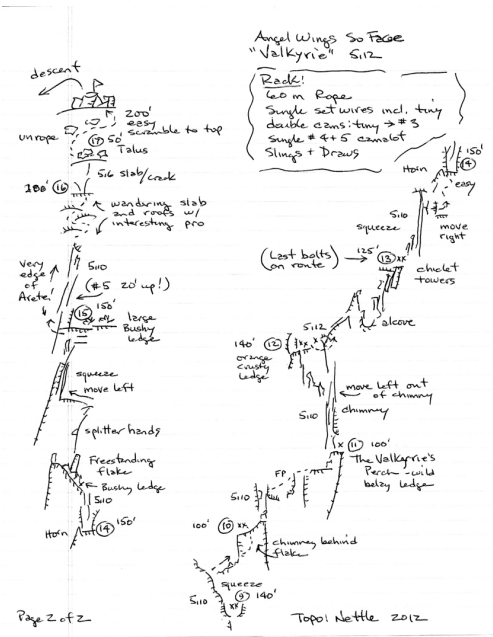 Angel Wings So Face
"Valkyrie" 5.12
Rack!
60 m Rope
Single set wires incl. tiny
double cams: tiny → #3
Single #4+5 camalot
Slings + Draws
descent
200'
easy
scramble to top
unrope
17
50'
Talus
5.6 slab/crack
180'
16
wandering slab
and roofs w/
interesting pro
very
edge
of
Arete!
5.10
(#5 20' up!)
15
150'
large
Bushy
ledge
squeeze
move left
splitter hands
Freestanding
flake
Bushy ledge
5.10
Horn
14
150'
Horn
150'
14
easy
5.10
squeeze
move
right
(Last bolts
on route)
125'
13
xx
chiclet
towers
alcove
5.12
140'
12
xx
orange
crusty
ledge
move left out
of chimney
chimney
5.10
x
11
100'
The Valkyrie's
Perch - wild
belay ledge
FP
5.10
100'
10
xx
chimney behind
flake
squeeze
5.10
9
140'
xx
Page 2 of 2
Topo: Nettle 2012